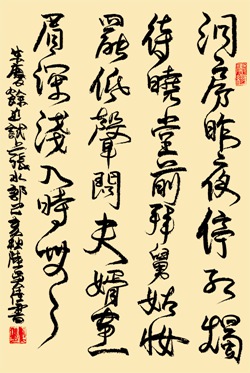 洞房昨夜停紅燭
待曉堂前拜舅姑妝
罷低聲問夫婿畫
眉深淺入時無
朱慶餘近試上張水部己亥秋陸書